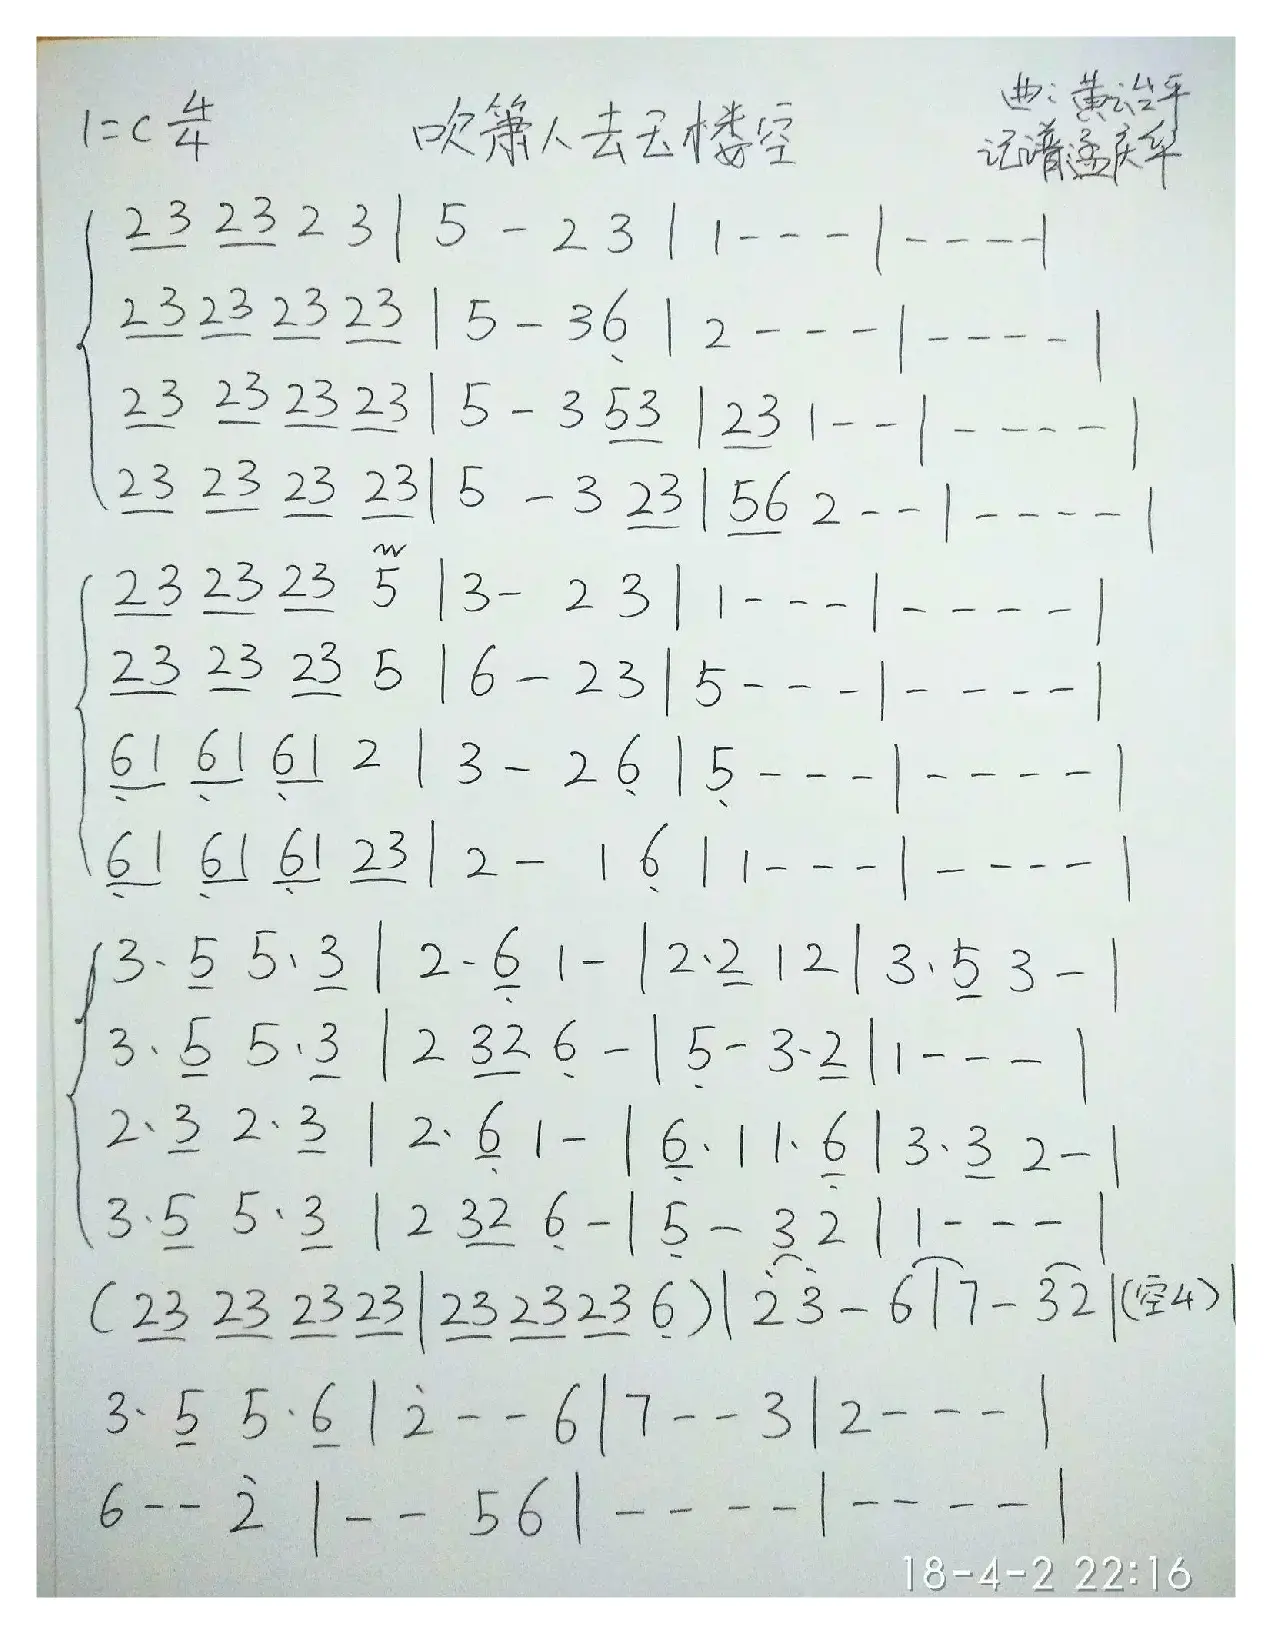 1=C 4/4 吹箫人去玉楼空 曲:黄治平
记谱孟庆华
23 23 2 3 | 5 - 2 3 | 1 - - - | - - - - |
23 23 23 23 | 5 - 3 6̣ | 2 - - - | - - - - |
23 23 23 23 | 5 - 3 53 | 23 1 - - | - - - - |
23 23 23 23 | 5 - 3 23 | 56 2 - - | - - - - |
23 23 23 5 | 3 - 2 3 | 1 - - - | - - - - |
23 23 23 5 | 6 - 2 3 | 5 - - - | - - - - |
6̣1 6̣1 6̣1 2 | 3 - 2 6̣ | 5̣ - - - | - - - - |
6̣1 6̣1 6̣1 23 | 2 - 1 6̣ | 1 - - - | - - - - |
3· 5 5· 3 | 2· 6̣ 1 - | 2· 2 1 2 | 3· 5 3 - |
3· 5 5· 3 | 2 32 6̣ - | 5̣ - 3· 2 | 1 - - - |
2· 3 2· 3 | 2· 6̣ 1 - | 6̣· 1 1· 6̣ | 3· 3 2 - |
3· 5 5· 3 | 2 32 6̣ - | 5̣ - 3 2 | 1 - - - |
(23 23 23 23 | 23 23 23 6̣) | 2̇ 3̇ - 6 | 7 - 3 2 | (空4) |
3· 5 5· 6 | 2̇ - - 6 | 7 - - 3 | 2 - - - |
6 - - 2̇ | - - 5 6 | - - - - | - - - - |
18-4-2 22:16